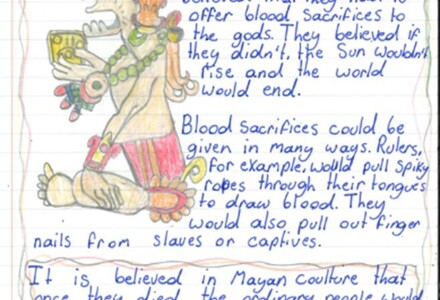 offer blood sacrifices to
the gods. They believed if
they didn't, the Sun wouldn't
rise and the world
would end.
Blood sacrifices could be
given in many ways. Rulers,
for example, would pull spiky
ropes through their tongues
to draw blood. They
would also pull out finger
nails from slaves or captives.
It is believed in Mayan coulture that
once they died the ordinary people would